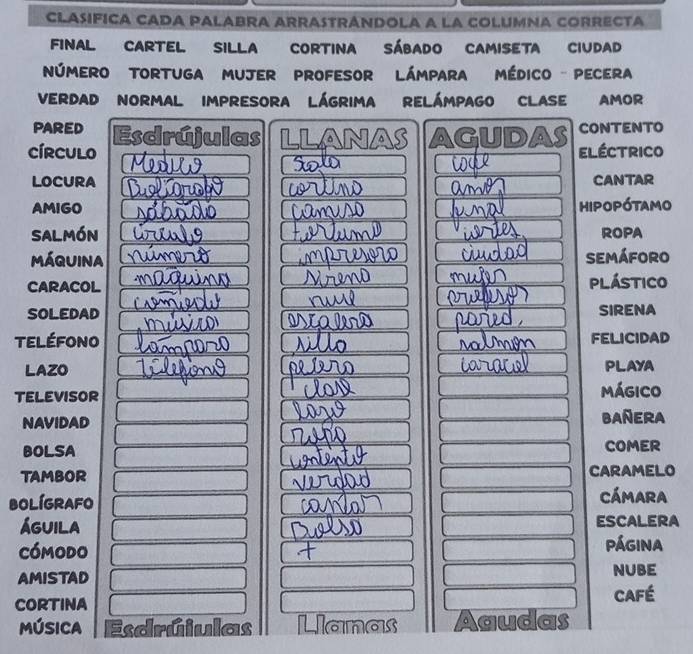 CLASIFICA CADA PALABRA ARRASTRÁNDOLA A LA COLUMNA CORRECTA
FINAL CARTEL SILLA CORTINA SÁBADO CAMISETA CIUDAD
NÚMERO TORTUGA MUJER PROFESOR LÁMPARA MÉDICO PECERA
VERDAD NORMAL IMPRESORA LÁGRIMA RELÁMPAGO CLASE AMOR
PARED
CÍRCULO
LOCURA
AMIGO
SALMÓN
MÁQUINA
CARACOL
SOLEDAD
TELÉFONO
LAZO
TELEVISOR
NAVIDAD
BOLSA
TAMBOR
BOLÍGRAFO
ÁGUILA
CÓMODO
AMISTAD
CORTINA
MÚSICA
Esdrújulas
Medico
Boligrafo
sábado
circulo
número
maquina
musica
lámpara
telefono
Esdrújulas
LLANAS
cortina
impresora
sirena
nube
escalera
silla
pecera
clase
lazo
ropa
contento
verdad
cantar
Bolsa
+
Llanas
AGUDAS
cafe
amor
final
ciudad
mujer
profesor
pared.
salmon
caracol
Agudas
CONTENTO
ELÉCTRICO
CANTAR
HIPOPÓTAMO
ROPA
SEMÁFORO
PLÁSTICO
SIRENA
FELICIDAD
PLAYA
MÁGICO
BAÑERA
COMER
CARAMELO
CÁMARA
ESCALERA
PÁGINA
NUBE
CAFÉ